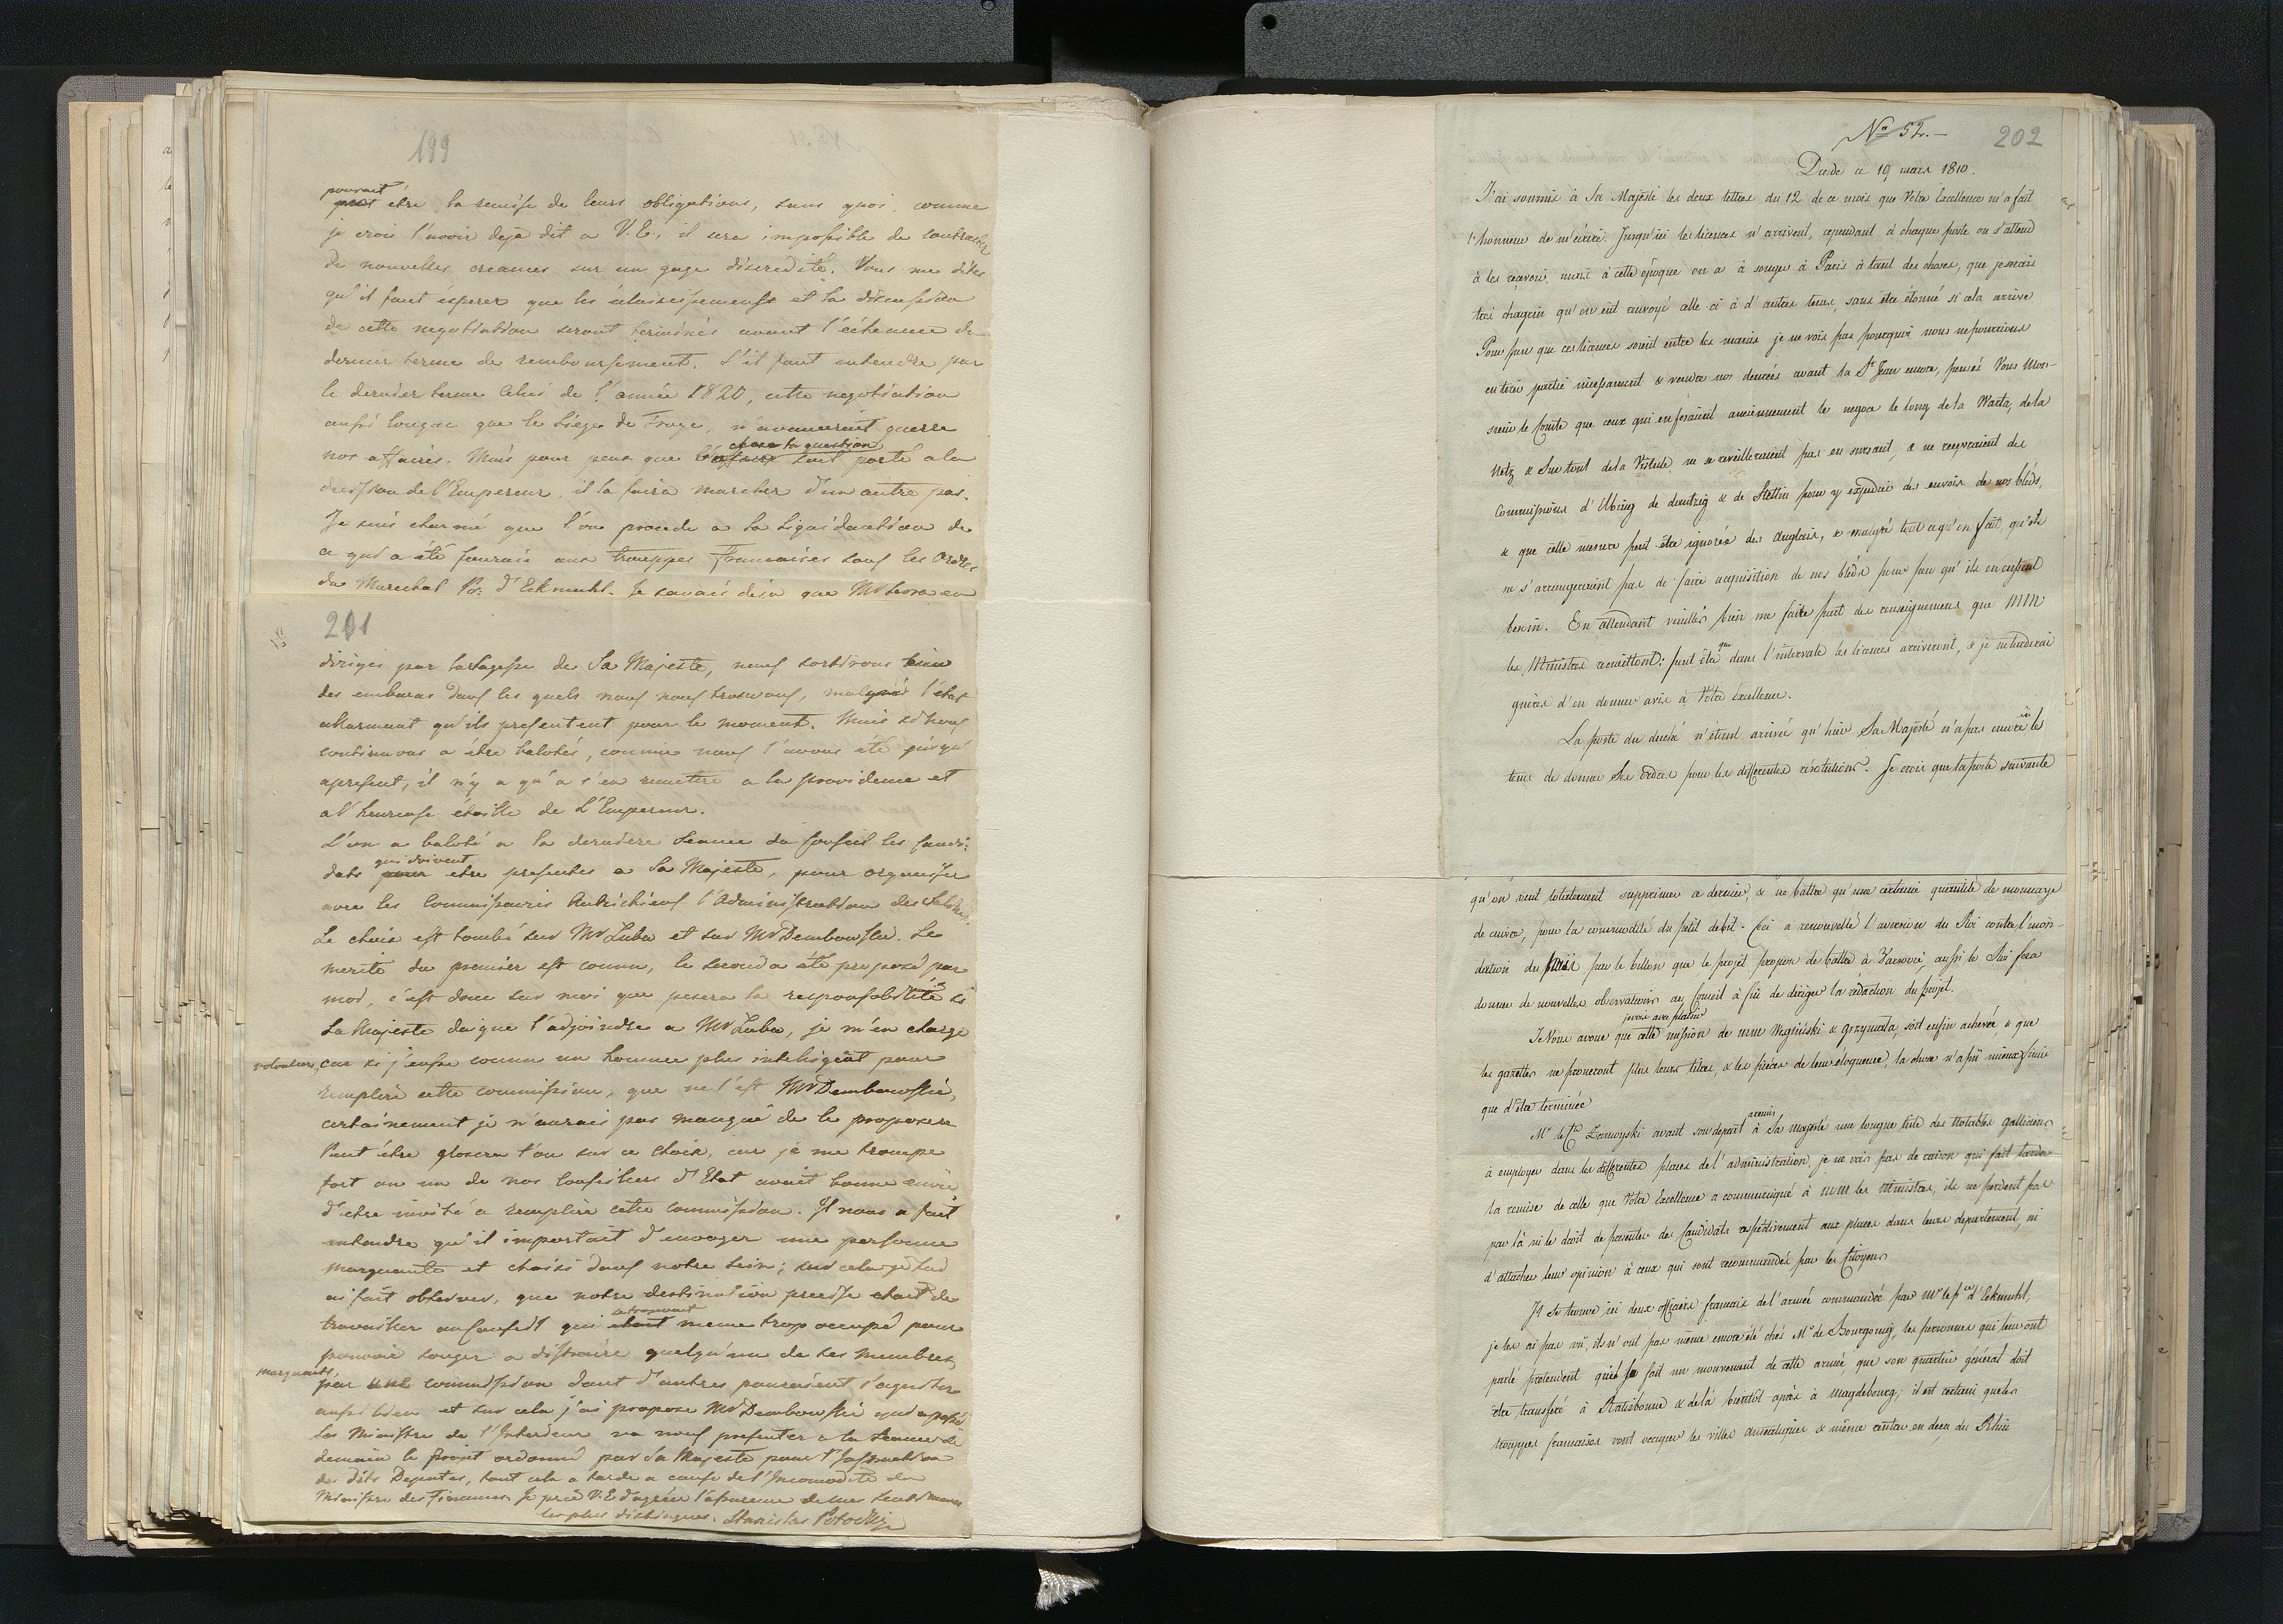 199
pourait
etre la remise de leurs obligations, sans quoi, comme
je crois l'avoir deja dit a V.E. il sera impossible de contracter
de nouvelles creances sur un gage discredité. Vous me dites
qu'il faut esperer que les éclaircissements et la discussion
de cette negotiation seront terminés avant l'échéance du
dernier terme de remboursement. S'il faut entendre par
le dernier terme celui de l'année 1820, cette negotiation
aussi longue que le Siège de Troye, n'avancerait guerre
nos affaires. Mais pour peux que la question soit porté a la
decission de l'Empereur, il la faira marcher d'un autre pas.
Je suis charmé que l'on procede a la Liquidation de
ce qui a été fournis aux trouppes Francaises sous les Ordres
du Marechal Pr: d'Eckmuhl. Je savais deja que Mr
201
diriges par la Sagesse de Sa Majesté, nous sortirons bien
des embaras dans les quels nous nous trouvons, malgré l'état
allarmant qu'ils presentent pour le moment. Mais si nous
continuons a être balotés, comme nous l'avons été jusqu'
apresent, il n'y a qu'a s'en remettre a la providence et
a l'heureuse étoille de L'Empereur.
L'on a baloté a la derniere Seance du Conseil les Candi-
dats qui doivent etre presentes a Sa Majesté, pour organiser
avec les Commissaires Autrichiens l'Administration des Salines.
Le choix est tombé sur Mr Luba et sur Mr Dembowski. Le
merite du premier est connu, le second a été proposé par
moi, c'est donc sur moi que pesera la responsabilité si
Sa Majesté daigne l'adjoindre a Mr Luba, je m'en charge
volontiers, car si j'eusse connu un homme plus intelligent pour
remplire cette commission, que ne l'est Mr Dembowski,
certainement je n'aurais pas manqué de le proposer.
Peut être glosera t'on sur ce choix, car je me trompe
fort ou un de nos Conseillers d'Etat avait bonne envie
d'etre invité a remplire cette Commission. Il nous a fait
entendre qu'il importait d'envoyer une personne
marquante et choisi dans notre sein; sur cela je lui
ai fait observer, que notre destination precise etait de
travailler au Conseil qui se trouvait meme trop occupé pour
pouvoir songer a distraire quelqu'un de ses membres
marquants
pour une commission dont d'autres pouraient s'aquiter
aussi bien et sur cela j'ai propose Mr Dembowski qui a passé
Le Ministre de l'Interieur va nous presenter a la Seance de
demain le projet ordonné par Sa Majesté pour l'
des dits Deputes, tout cela a tardé a cause de l'Incomodité du
Ministre des Finances. Je prie V.E. d'agréer l'assurance de mes sentimens
les plus distingues. Stanislas Potocki
No 52.
202
Dresde ce 19 mars 1810.
J'ai soumis à Sa Majesté les deux lettres du 12 de ce mois que Votre Excellence m'a fait
l'honneur de m'écrire. Jusqu'ici les licences n'arrivent, cependant à chaque poste on s'attend
à les recevoir, mais à cette époque on a à songer à Paris à tant des choses, que je serais
très chagrin qu'on eut renvoyé celle-ci à d'autres tems, sans etre étonné si cela arrive.
Pour peu que ces licences soient entre les mains je ne vois pas pourquoi nous ne pourrions
en tirer partie incessament & vendre nos denrées avant la St Jean encore, pensés Vous Mon-
sieur le Comte que ceux qui en fesaient anciennement le negoce le long de la Warta, de la
Netz & surtout de la Vistule ne se reveilleraient pas en sursaut, & ne recevraient des
commissions d'Elbing de dantzig & de Stettin pour y expedier des envois de nos bleds,
& que cette mesure peut-être ignorée des Anglais, & malgré tout ce qu'on fait, qu'ils
ne s'arrangeraient pas de faire acquisition de nos bleds pour peu qu'ils en eussent
besoin. En attendant veuillés bien me faire part des renseignemens que MM
les Ministres recueillent; peut être que dans l'intervale les licences arriveront, & je ne tarderai
guères d'en donner avis à Votre Excellence.
La poste du duché n'étant arrivée qu'hier Sa Majesté n'a pas encore eu le
tems de donner Ses ordres pour les differentes résolutions. Je crois que la poste suivante
qu'on veut totalement supprimer ce dernier, & ne battre qu'une certaine quantité de monnaye
de cuivre, pour la commodité du petit debit. Ceci a renouvellé l'aversion du Roi contre l'inon-
dation du païs par le billon que le projet propose de battre à Varsovie, aussi le Roi fera
donner de nouvelles observations au Conseil à fin de diriger la rédaction du projet.
Je Vous avoue que je vois avec plaisir cette mission de MM Węgliński & Grzymała, soit enfin achevée & que
les gazettes ne proneront plus leurs titres, & les pièces de leur eloquence, la chose n'a pû mieux finir
que d'être terminée
Mr le Cte Zamoyski avant son depart a remis à Sa Majesté une longue liste des Notables Galliciens
à employer dans les differentes places de l'administration, je ne vois pas de raison qui fait tarder
la remise de celle que Votre Excellence a communiqué à MM les Ministres, ils ne perdent pas
par là ni le droit de presenter des Candidats respectivement aux places dans leurs departement, ni
d'attacher leur opinion à ceux qui sont recommandés par les Citoyens
Il se trouve ici deux officiers francais de l'armée commandée par Mr le pce d'Eckmuhl,
je les ai pas vu, ils n'ont pas même encore été chés Mr de Bourgoing, les personnes qui leur ont
parlé pretendent qu'il se fait un mouvement de cette armée, que son quartier général doit
être transferé à Ratisbonne & delà bientôt après à Magdebourg; il est certain que les
trouppes francaises vont occuper les villes anseatiques & même rentrer en deça du Rhin